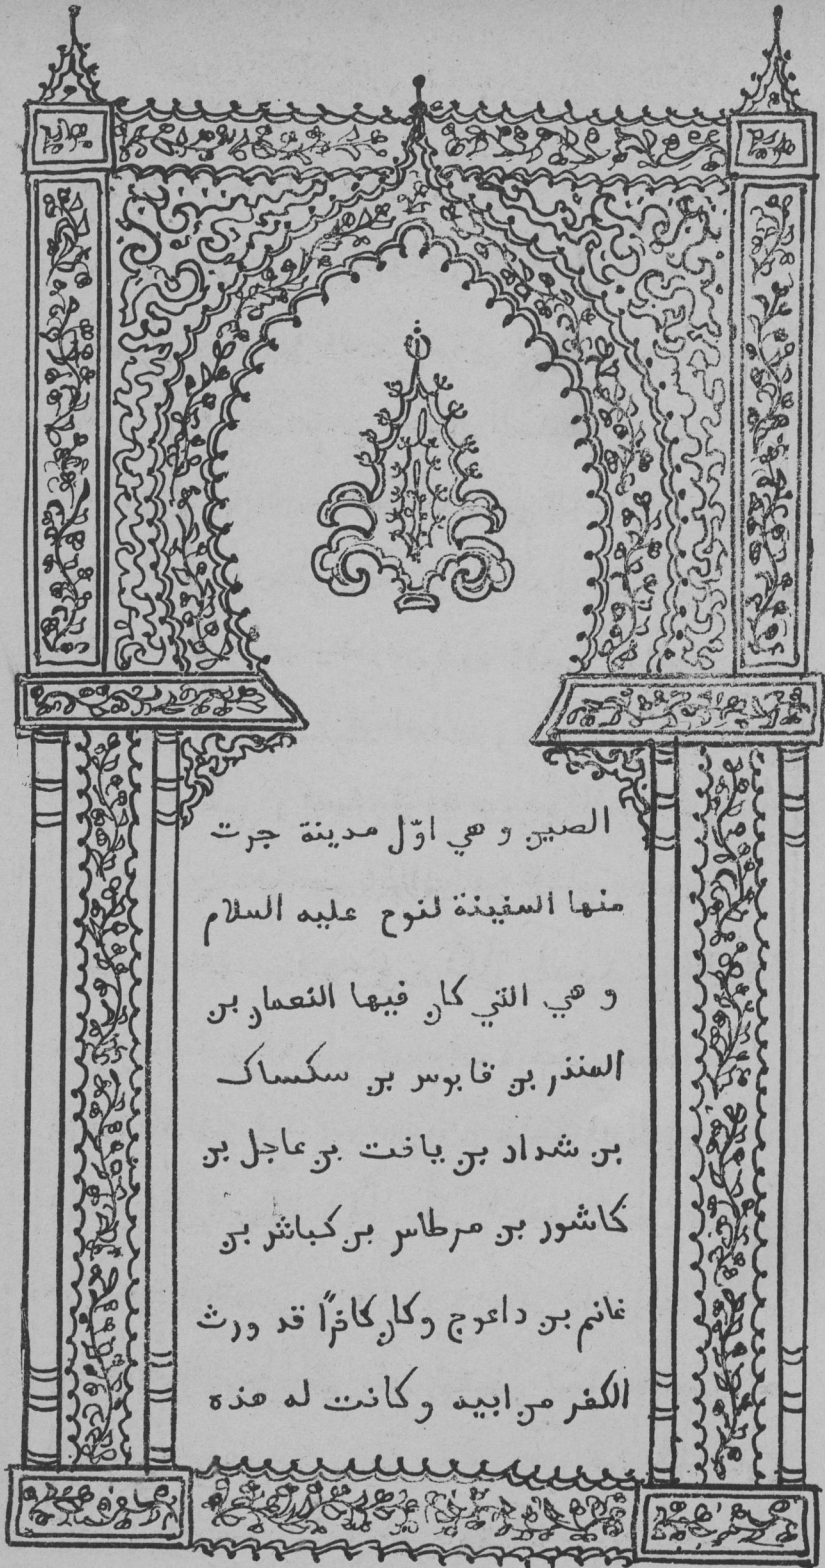 الصين و هي اوّل مدينة جرت
منها السفينة لنوح عليه السلام
و هي التي كان فيها النعمان بن
المنذر بن قابوس بن سكساك
بن شداد بن يافت بن عاجل بن
كاشور بن مرطاس بن كباش بن
غانم بن داعوج وكان كافرًا قد ورث
الكفر من ابيه وكانت له هذه